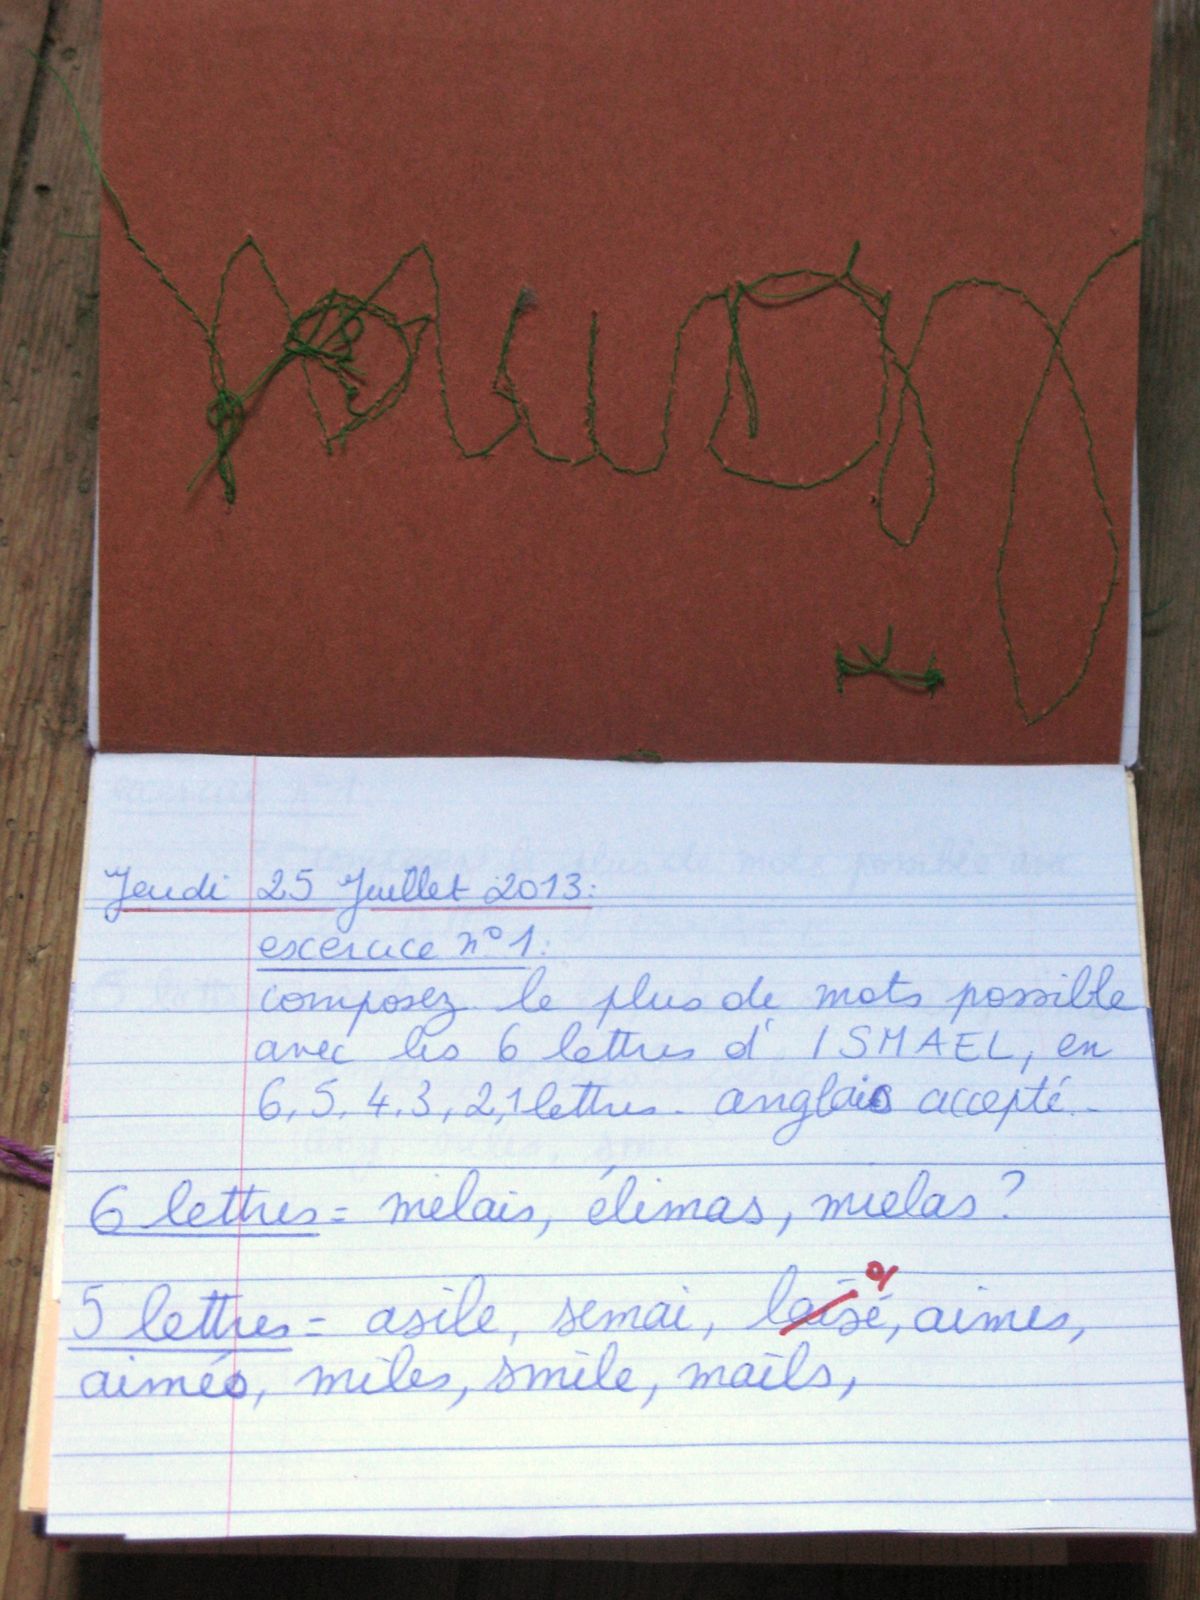 Jeudi 25 Juillet 2013:
exercice n°1:
composez le plus de mots possible
avec les 6 lettres d' ISMAEL, en
6, 5, 4, 3, 2, 1 lettres. anglais accepté.
6 lettres = mêlais, élimas, mielas?
5 lettres = asile, semai, laïsé, aimes,
aimés, miles, smile, mails,